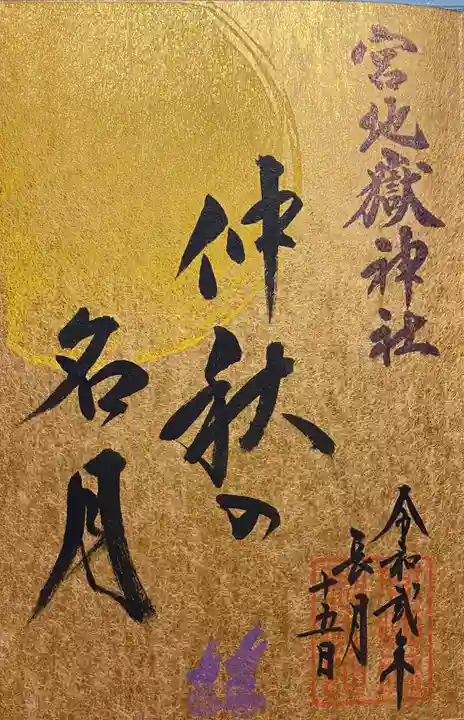 宮地嶽神社
仲秋の
名月
令和弐年
長月
十五日